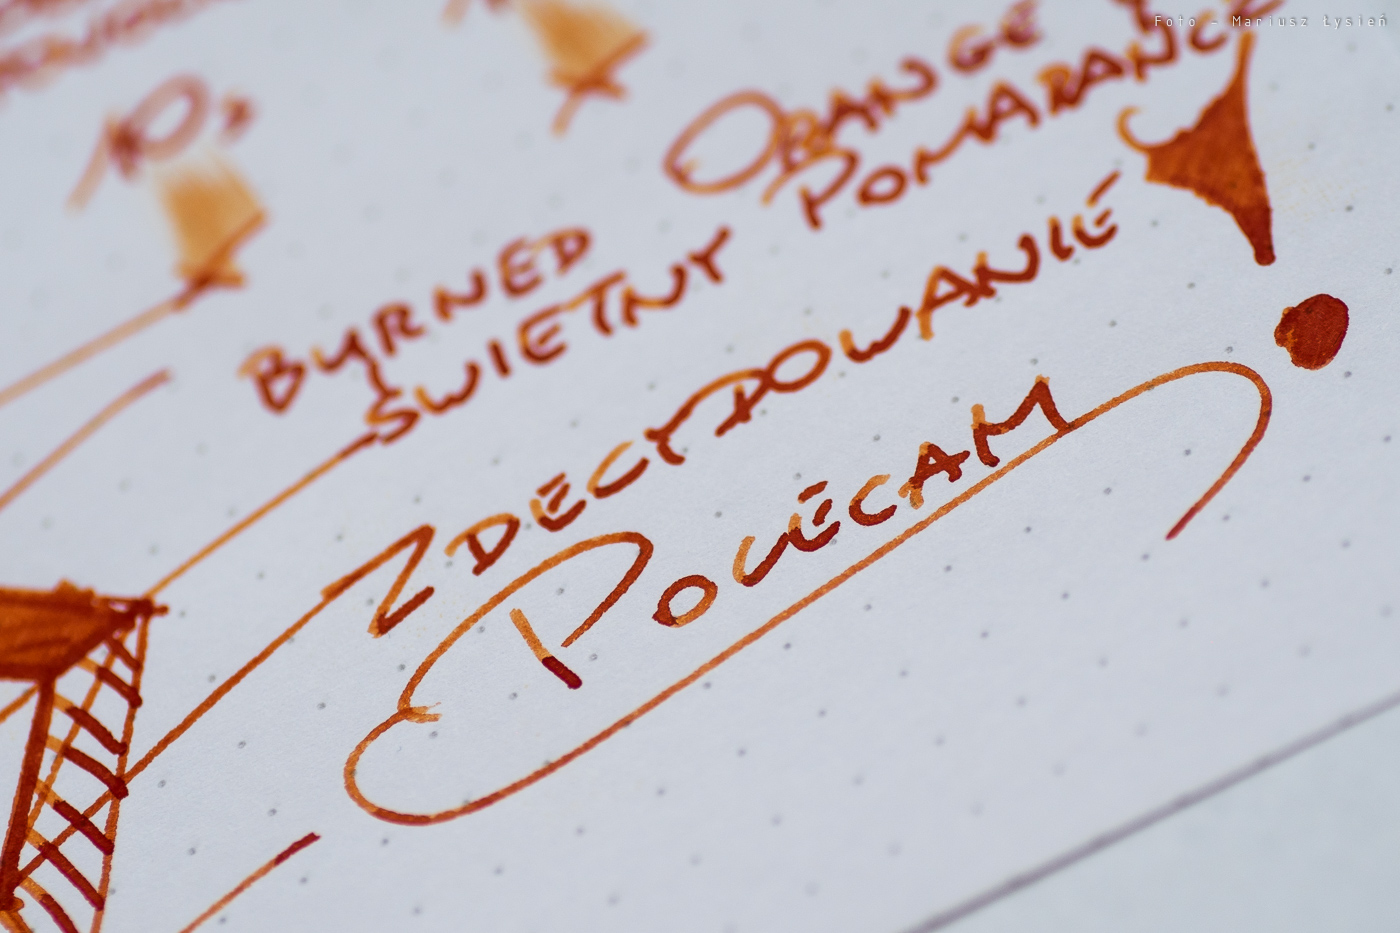 Foto - Mariusz Łysień
10x
ORANGE
BURNED
POMARAŃCZ
ŚWIETNY
ZDECYDOWANIE
POLECAM